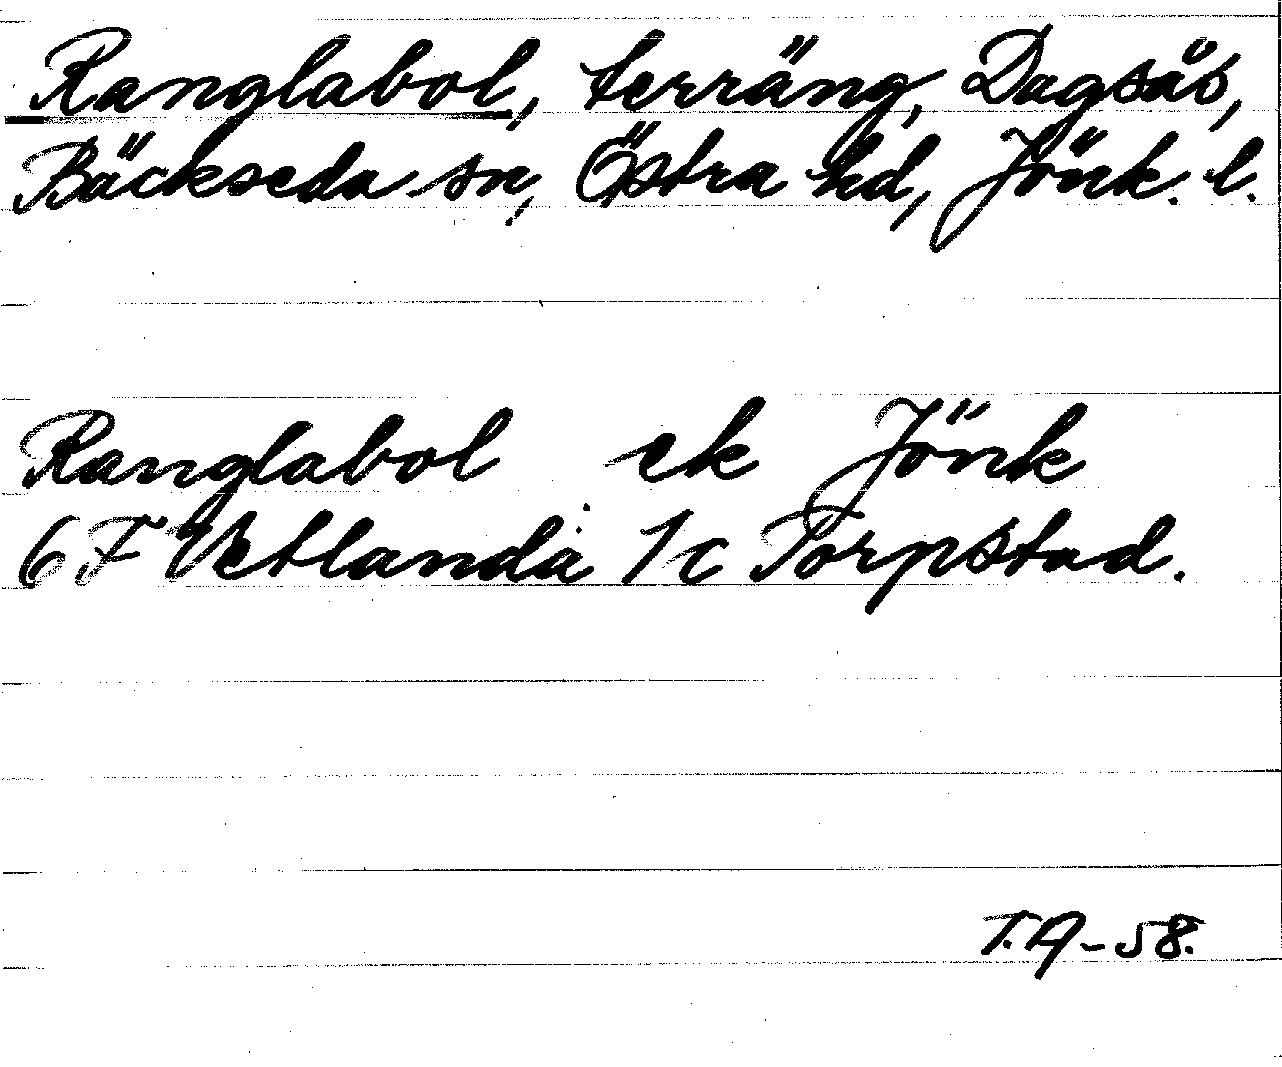 Ranglabol, terräng, Dagsås,
Bäckseda sn, Östra hd, Jönk. l.
Ranglabol ek Jönk
6 F Vetlanda 1c Torpstad.
T.A-58.